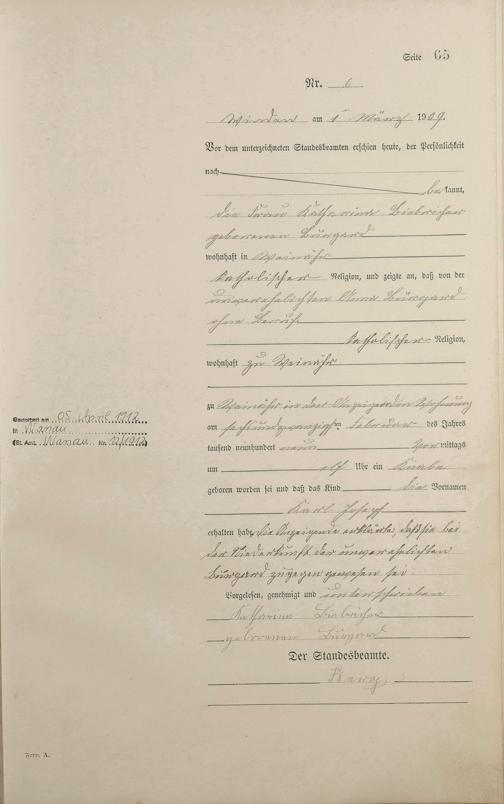 Seite 65
Nr. 6
Winden am 1ten März 1909.
Vor dem unterzeichneten Standesbeamten erschien heute, der Persönlichkeit
nach
bekannt,
die Frau Katharina Biebricher
geborenen Burgard
wohnhaft in Weinähr
katholischer Religion, und zeigte an, daß von der
unverehelichten Anna Burgard
ohne Beruf
katholischer Religion,
wohnhaft zu Weinähr
zu Weinähr in der Anzeigenden Wohnung
am sechsundzwanzigsten Februar des Jahres
tausend neunhundert neun Vormittags
um elf Uhr ein Knabe
geboren worden sei und daß das Kind die Vornamen
Karl Josef
erhalten habe. Die Anzeigende erklärte, daß sie bei
der Niederkunft der unverehelichten
Burgard zugegen gewesen sei.
Vorgelesen, genehmigt und unterschrieben
Katharina Biebricher
geborenen Burgard
Der Standesbeamte.
am 05. April 1912
in
(St. Amt. Nr. 12/1912)
Form. A.